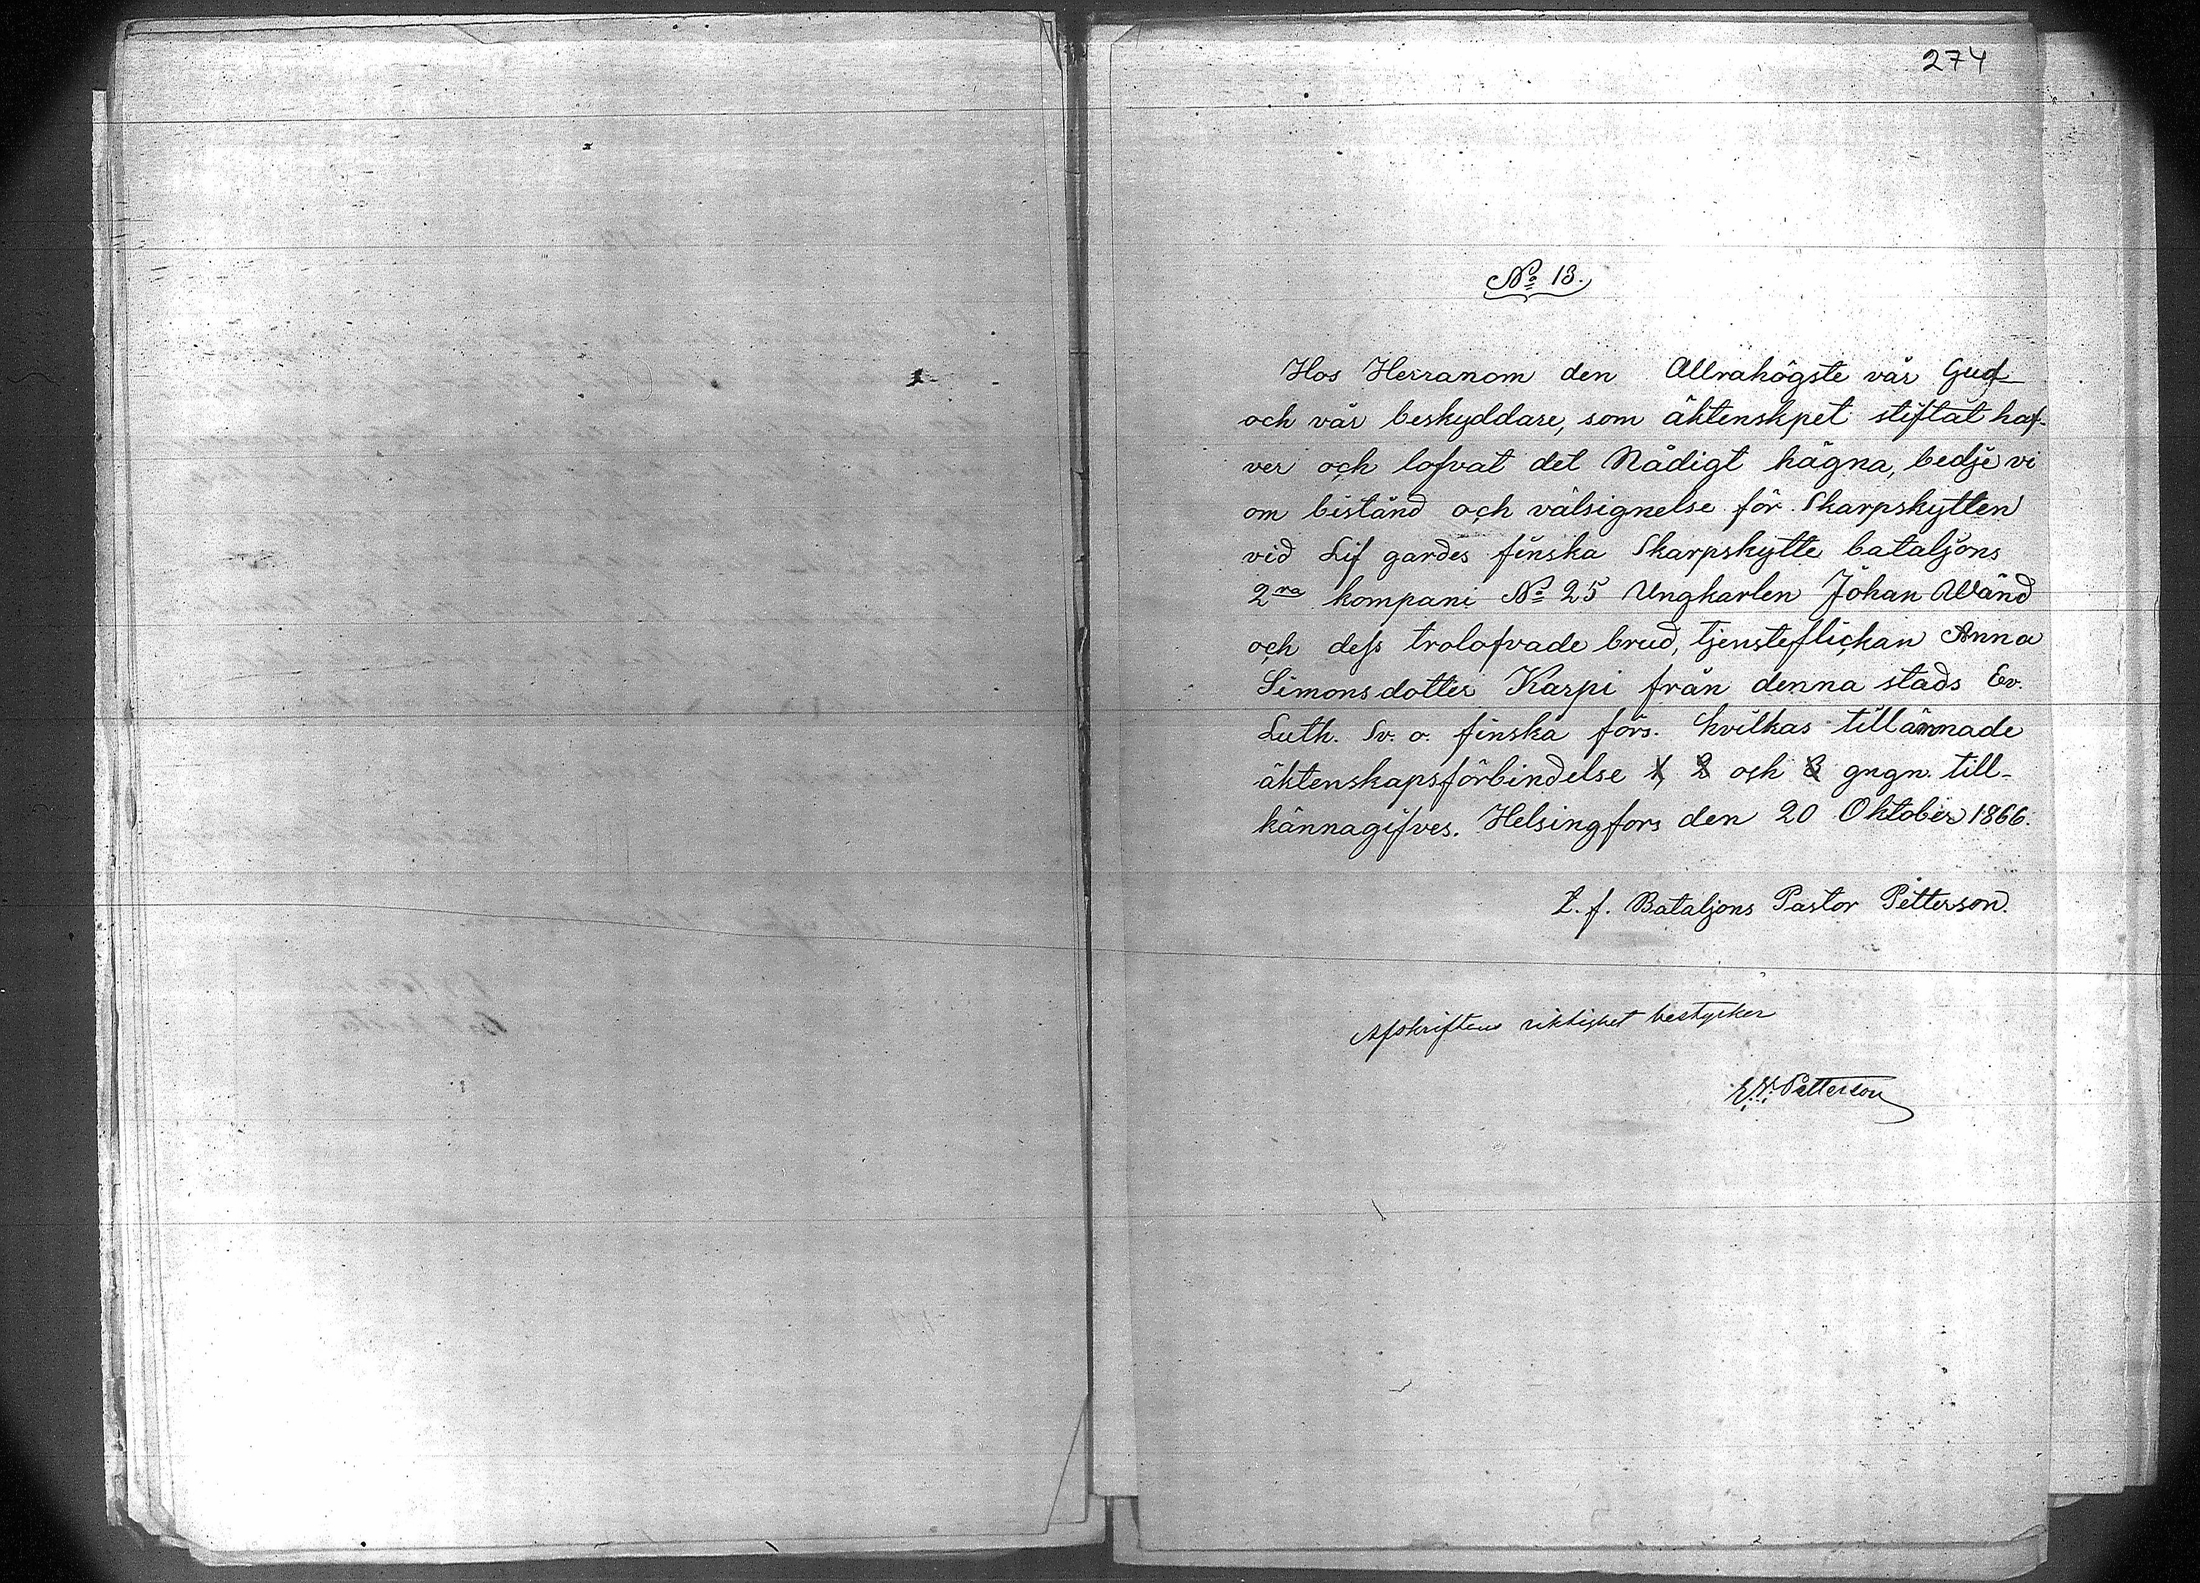 274
No 13.
Hos Herranom den Allrahögste vår Gud
och vår beskyddare, som äktenskpet stiftat haf-
ver och lofvat det Nådigt hägna, bedje vi
om bistånd och välsignelse för Skarpskytten
vid Lif gardes finska Skarpskytte bataljons
2ra kompani No 25 Ungkarlen Johan Wänd
och dess trolofvade brud, tjensteflickan Anna
Simonsdotter Karpi från denna stads Ev.
Luth. Sv. o. finska förs. hvilkas tillämnade
äktenskapsförbindelse 1 2 och 3 gngn. till-
kännagifves. Helsingfors den 20 Oktober 1866.
T. f. Bataljons Pastor Petterson.
Afskriftens riktighet bestyrker
Petterson